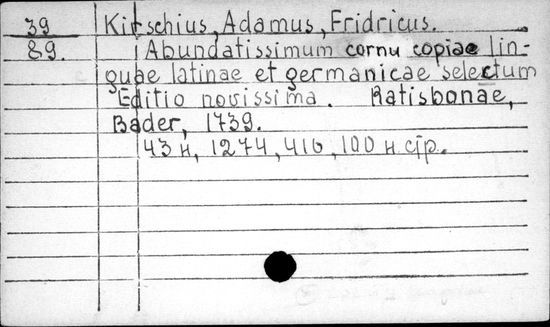 39 Kirschius, Adamus, Fridricus.
89. Abundatissimum cornu copiae lin-
guae latinae et germanicae selectum
Editio novissima. Ratisbonae,
Bader, 1739.
43 н, 1274, 416, 100 н. стр.